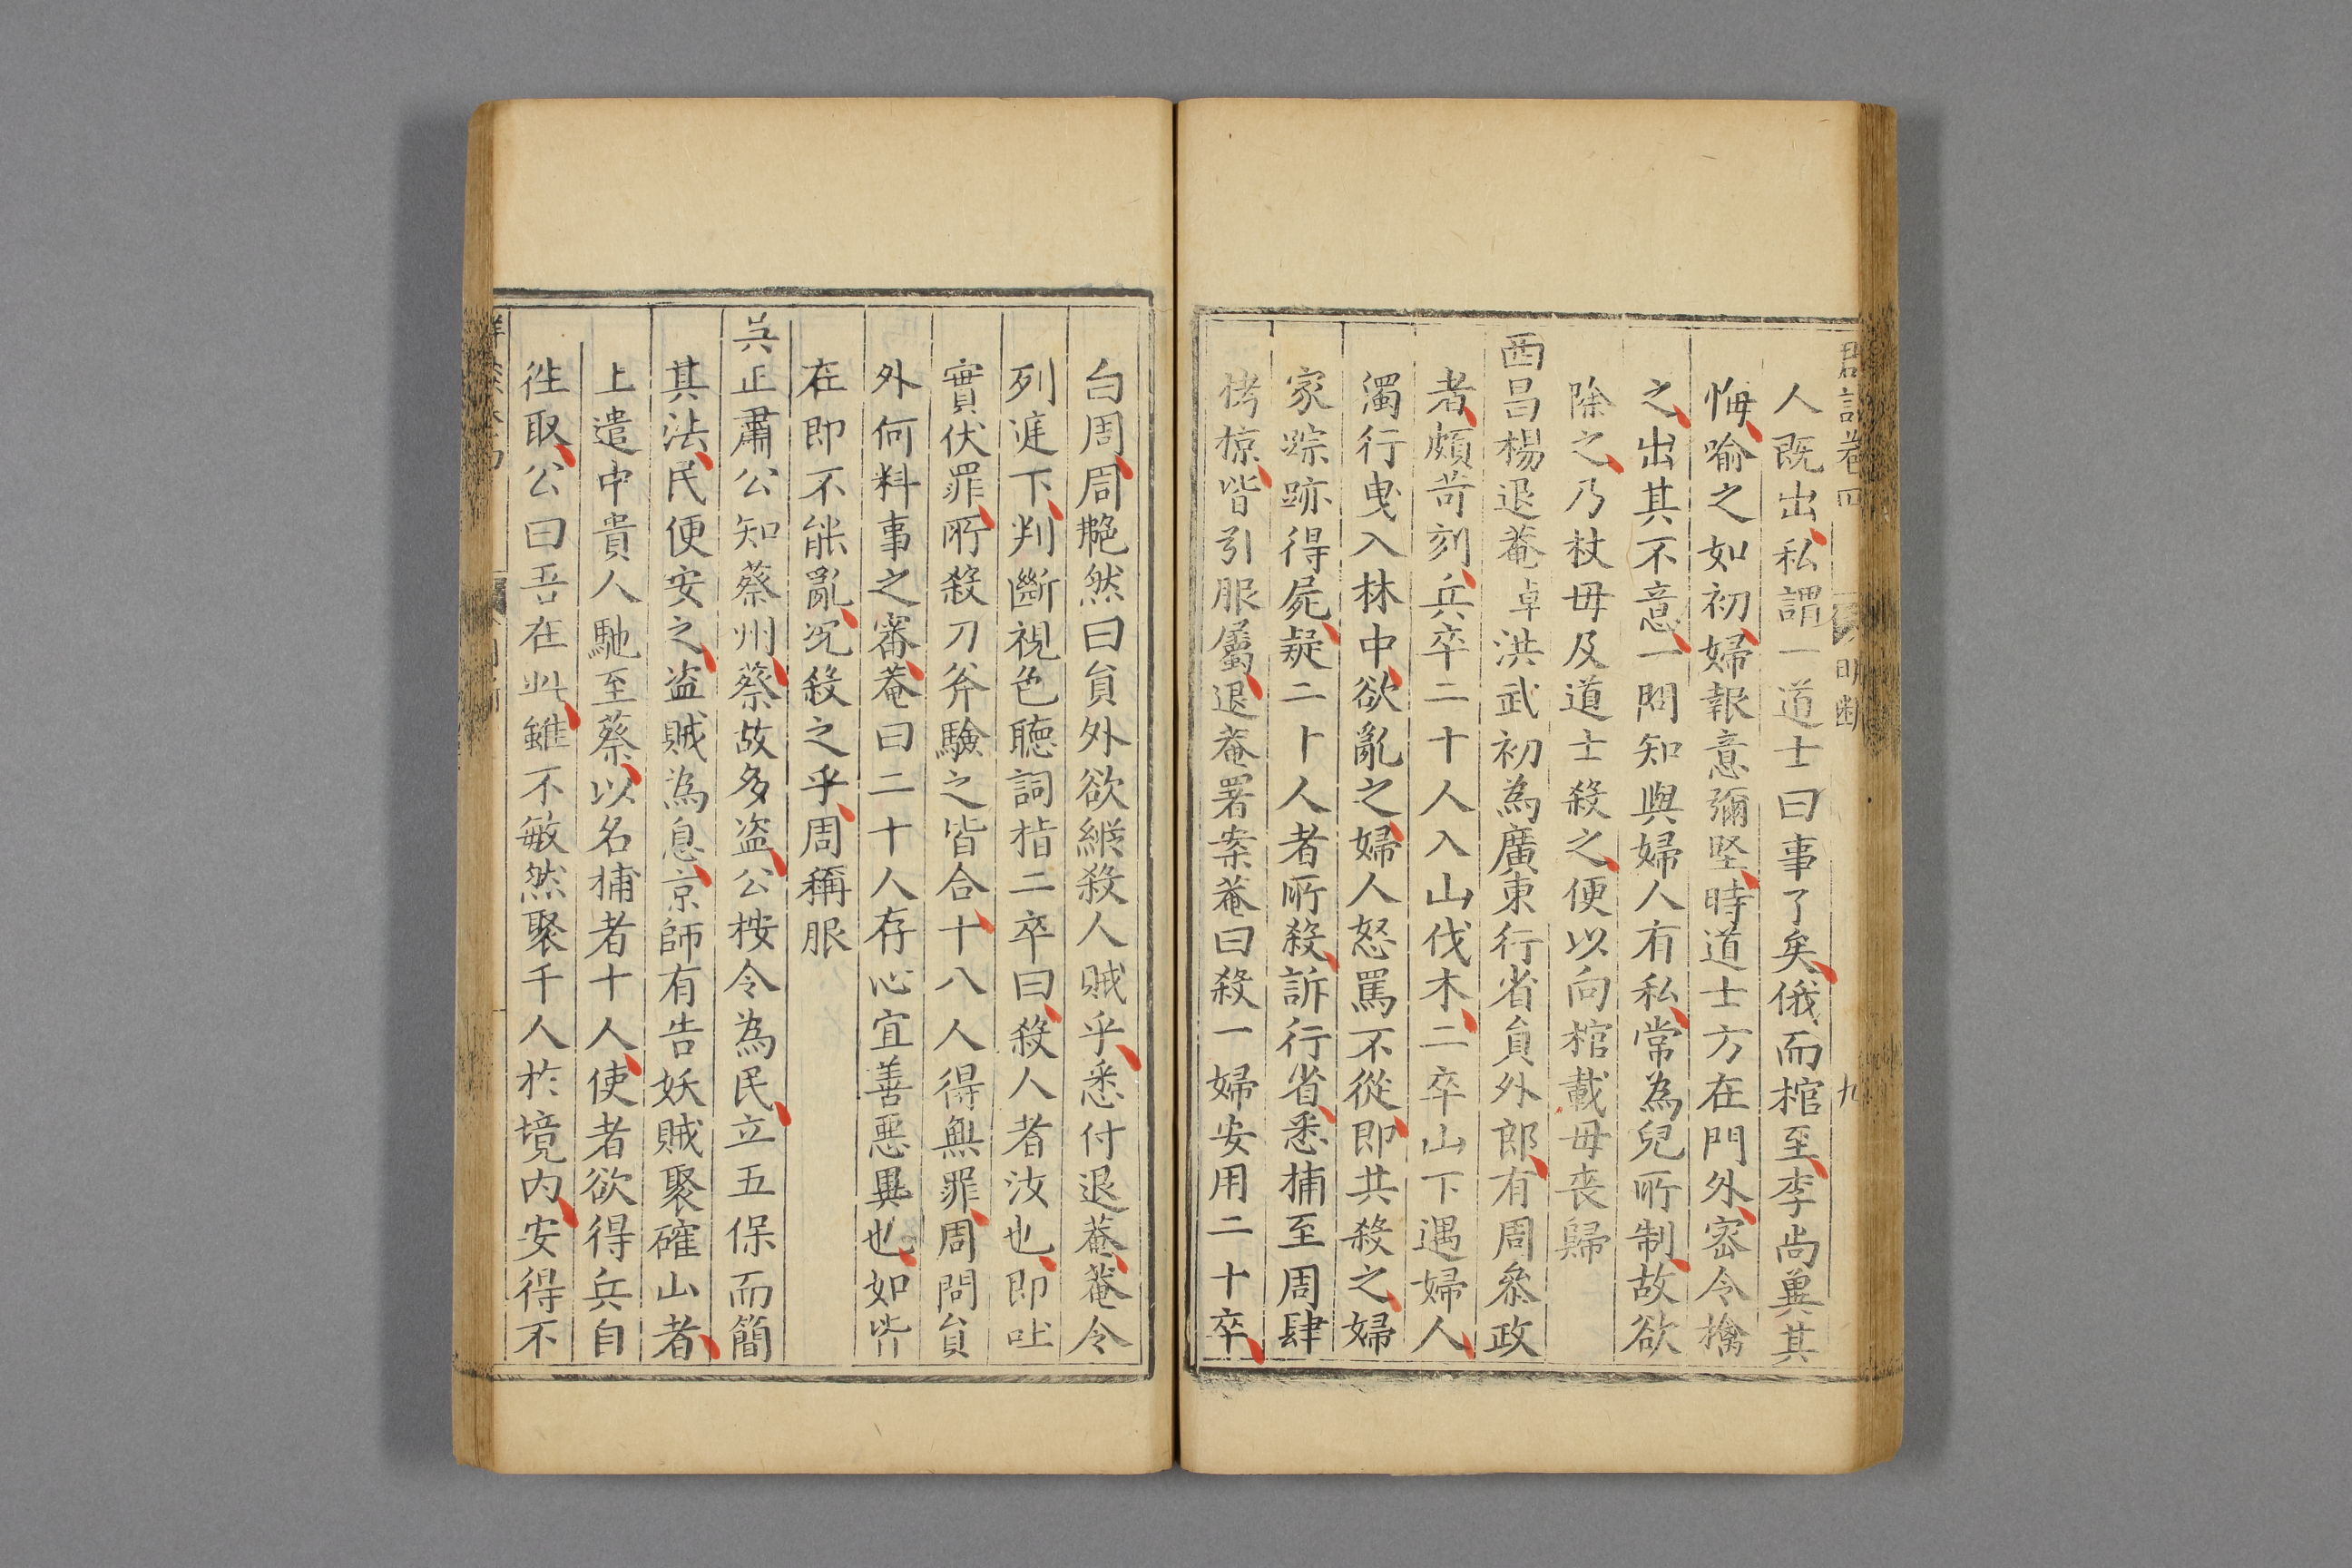 卷四 明斷 九
人既出私謂一道士曰事了矣俄而棺至李尚兾其
悔喻之如初婦報意彌堅時道士方在門外密令擒
之出其不意一問知與婦人有私常為兒所制故欲
除之乃杖母及道士殺之便以向棺載母喪歸
西昌楊退菴卓洪武初為廣東行省貟外郎有周叅政
者頗苛刻兵卒二十人入山伐木二卒山下遇婦人
濁行曳入林中欲亂之婦人怒罵不從即共殺之婦
家踪跡得屍疑二十人者所殺訴行省悉捕至周肆
拷椋皆引服屬退菴署案菴曰殺一婦安用二十卒
白周周艴然曰貟外欲縱殺人賊乎悉付退菴菴令
列庭下判斷視色聽詞指二卒曰殺人者汝也即吐
實伏罪所殺刀斧驗之皆合十八人得無罪周問貟
外何料事之審菴曰二十人存心宜善惡異也如皆
在即不能亂况殺之乎周稱服
吳正肅公知蔡州蔡故多盗公按令為民立五保而簡
其法民便安之盗賊為息京師有告妖賊聚確山者
上遣中貴人馳至蔡以名捕者十人使者欲得兵自
徃取公曰吾在此雖不敏然聚千人於境内安得不